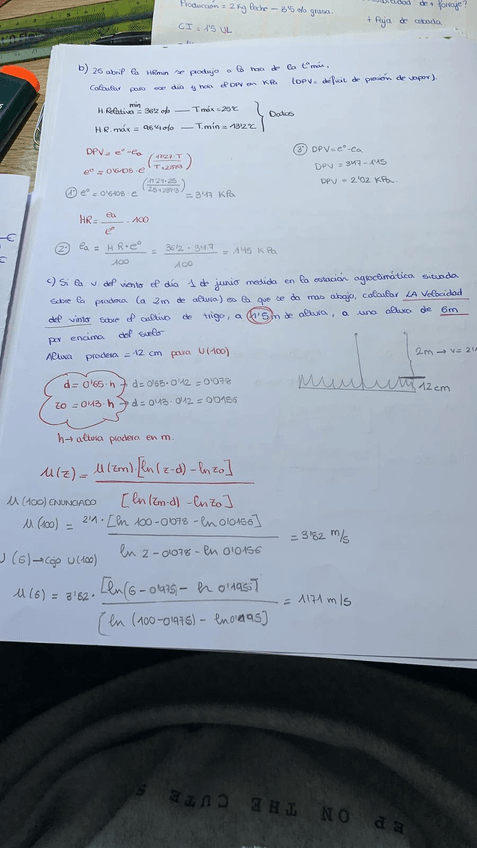 Producción = 2 Kg leche - 8'5 % grasa.
CI = 1'5 UL
+ forraje?
+ Paja de cebada
b) 25 abril la HRmin se produjo a la hora de la tª máx.
Calcular para ese día y hora el DPV en KPa (DPV = déficit de presión de vapor).
H. Relativa min = 36'2 % — T máx = 25ºC
H.R. máx = 98'4 % — T. mín = 13'2ºC
Datos
DPV = eº - ea
eº = 0'6108 · e (17'27·T / T + 237'3)
① eº = 0'6108 · e (17'27·25 / 25 + 237'3) = 3'17 KPa
③ DPV = eº - ea
DPV = 3'17 - 1'15
DPV = 2'02 KPa.
HR = ea / eº · 100
② ea = HR · eº / 100 = 36'2 · 3'17 / 100 = 1'15 KPa
c) Si la v. del viento el día 1 de junio medida en la estación agroclimática situada
sobre la pradera (a 2m de altura) es la que se da mas abajo, calcular LA Velocidad
del viento sobre el cultivo de trigo, a 1'5 m de altura, a una altura de 6m
por encima del suelo
Altura pradera = 12 cm para U(100)
2m → v = 2'1
12 cm
d = 0'65 · h → d = 0'65 · 0'12 = 0'078
zo = 0'13 · h → d = 0'13 · 0'12 = 0'0156
h → altura pradera en m.
u(z) = u(zm) · [ln(z-d) - ln zo] / [ln(zm-d) - ln zo]
u(100) ENUNCIADO
u(100) = 2'1 · [ln 100 - 0'078 - ln 0'0156] / ln 2 - 0'078 - ln 0'0156 = 3'82 m/s
U(6) → Cojo U(100)
u(6) = 3'82 · [ln(6 - 0'975) - ln 0'195] / [ln(100 - 0'975) - ln 0'195] = 1'171 m/s
EEP ON THE CUTE S